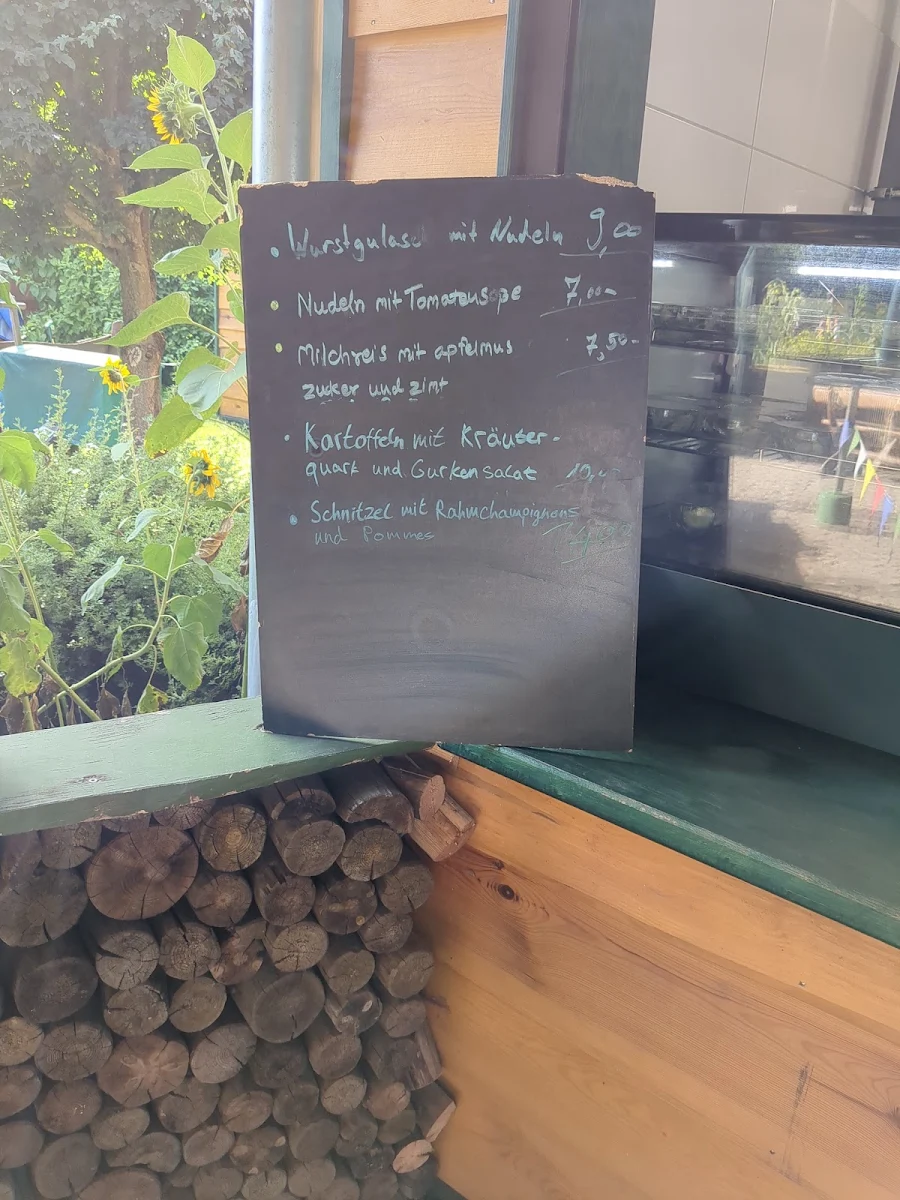 • Wurstgulasch mit Nudeln 9,00
• Nudeln mit Tomatensoße 7,00-
• Milchreis mit apfelmus 7,50-
zucker und zimt
• Kartoffeln mit Kräuter-
quark und Gurkensalat 10,-
• Schnitzel mit Rahmchampignons
und Pommes 14,00